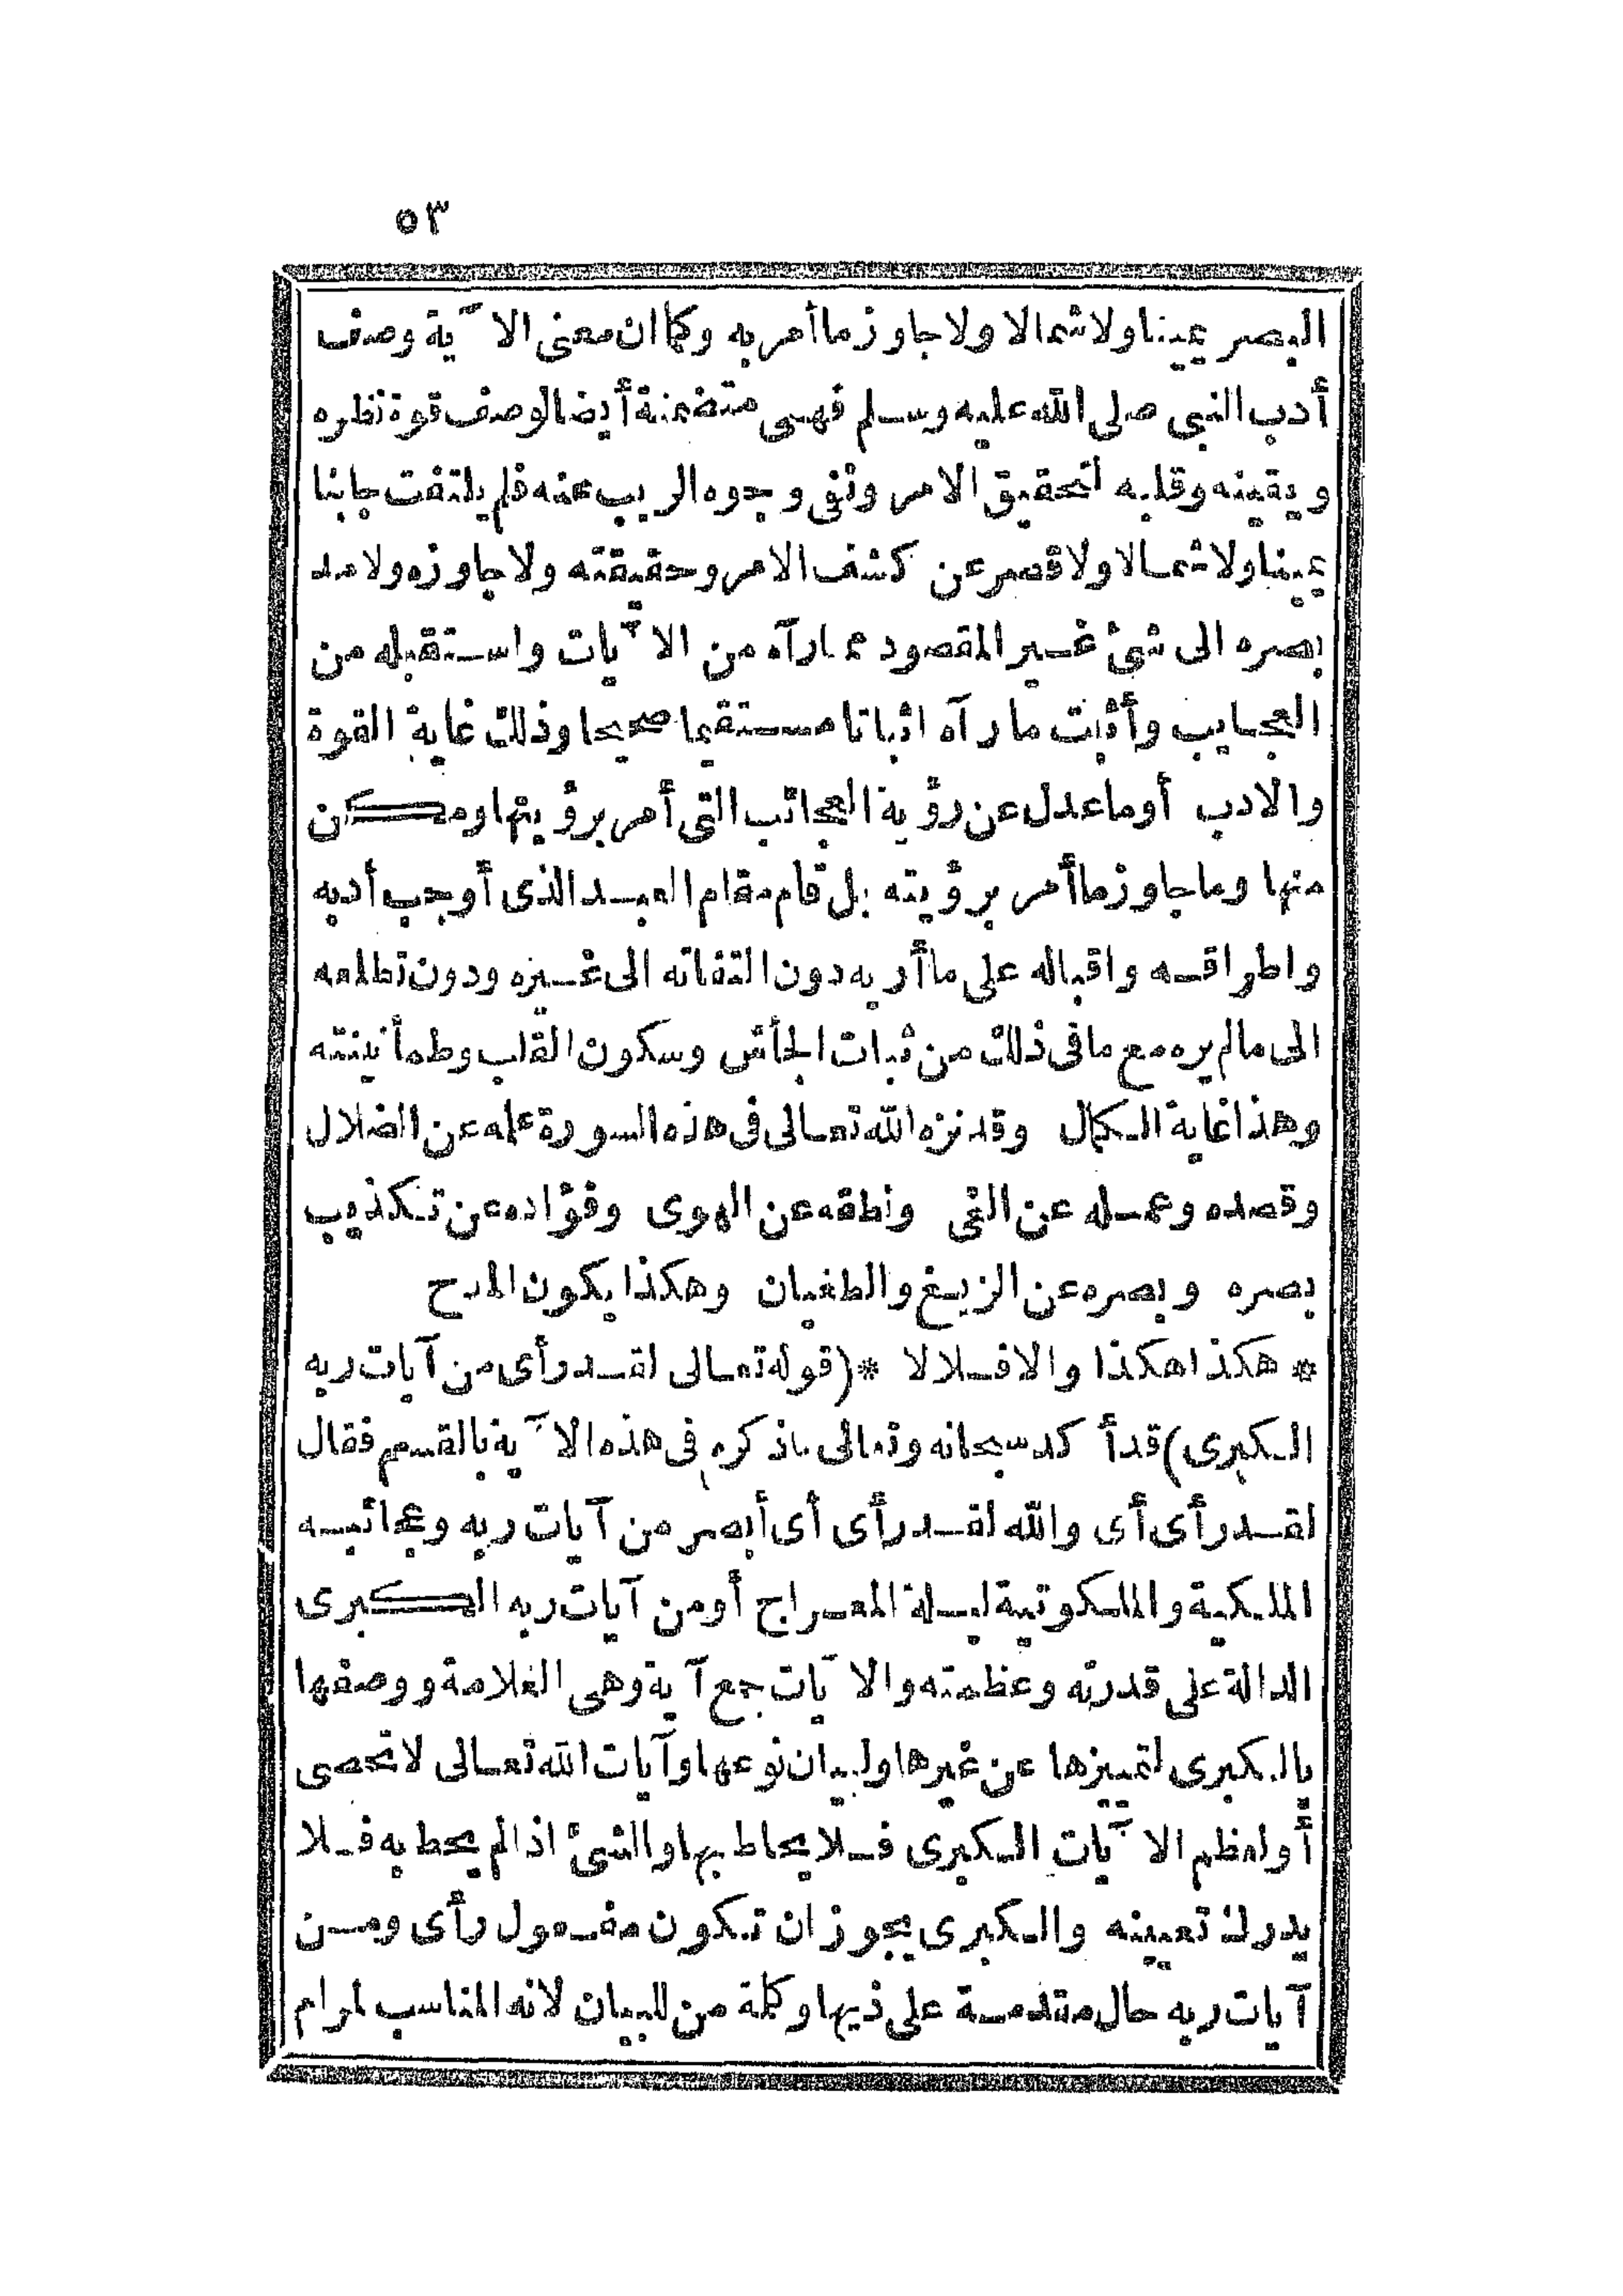 ٥٣
البصر يمينا ولا شمالا ولا جاوز ما أمر به وكما ان معنى الآية وصف
أدب النبي صلى الله عليه وسلم فهى متضمنة أيضا لوصف قوة نظره
ويقينه وقلبه لتحقيق الامر ونفى وجوه الريب عنه فلم يلتفت جانبا
يمينا ولا شمالا ولا قصر عن كشف الامر وحقيقته ولا جاوزه ولا مد
بصره الى شئ غير المقصود مما رآه من الآيات واستقبله من
العجايب وأثبت ما رآه اثباتا مستقيما صحيحا وذلك غاية القوة
والادب أو ما عدل عن رؤية العجائب التى أمر برؤيتها ومكن
منها وما جاوز ما أمر برؤيته بل قام مقام العبد الذى أوجب أدبه
واطراقه واقباله على ما أر به دون التفاته الى غيره ودون تطلعه
الى ما لم يره مع ما فى ذلك من ثبات الجأش وسكون القلب وطمأنينته
وهذا غاية الكمال وقد نزه الله تعالى فى هذه السورة علمه عن الضلال
وقصده وعمله عن الغى ونطقه عن الهوى وفؤاده عن تكذيب
بصره وبصره عن الزيغ والطغيان وهكذا يكون المدح
* هكذا هكذا والا فلا لا * (قوله تعالى لقد رأى من آيات ربه
الكبرى) قد أكد سبحانه وتعالى ماذكره فى هذه الآية بالقسم فقال
لقد رأى أى والله لقد رأى أى أبصر من آيات ربه وعجائبه
الملكية والملكوتية ليلة المعراج أو من آيات ربه الكبرى
الدالة على قدرته وعظمته والآيات جمع آية وهى العلامة ووصفها
بالكبرى لتمييزها عن غيرها ولبيان نوعها وآيات الله تعالى لا تحصى
أو لعظم الآيات الكبرى فلا يحاط بها والشئ اذا لم يحط به فلا
يدرك تعيينه والكبرى يجوز ان تكون مفعول رأى ومن
آيات ربه حال متقدمة على ذيها وكلمة من للبيان لانه المناسب لمرام